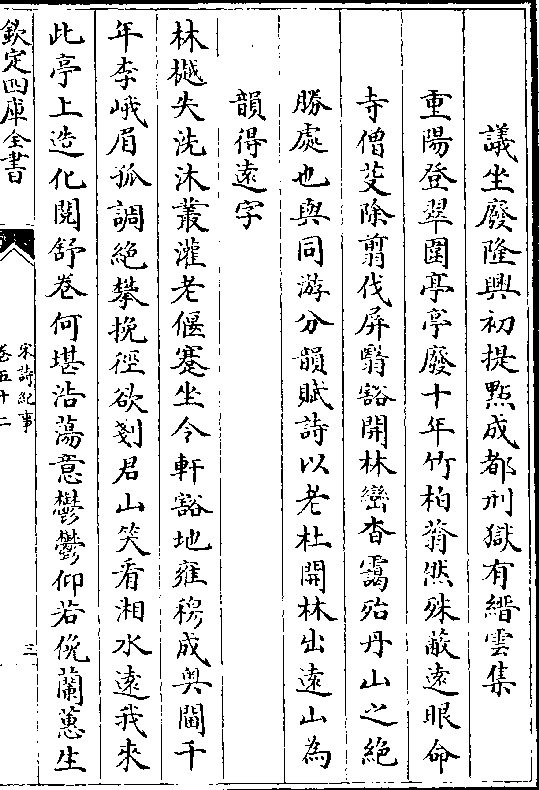 議坐廢隆興初提㸃成都刑獄有縉雲集
重陽登翠圍亭亭廢十年竹柏蓊然殊蔽遠眼命
寺僧芟除翦伐屏翳豁開林巒杳靄殆丹山之絶
勝處也與同游分韻賦詩以老杜開林出遠山為
韻得遠字
林樾失洗沐叢灌老偃蹇坐令軒豁地雍穆成奥閫千
年李峨眉孤調絶攀挽徑欲剗君山笑看湘水遠我來
此亭上造化閲舒巻何堪沿蕩意鬱鬱仰若俛蘭蕙生
欽定四庫全書
宋詩紀事
卷五十二
三